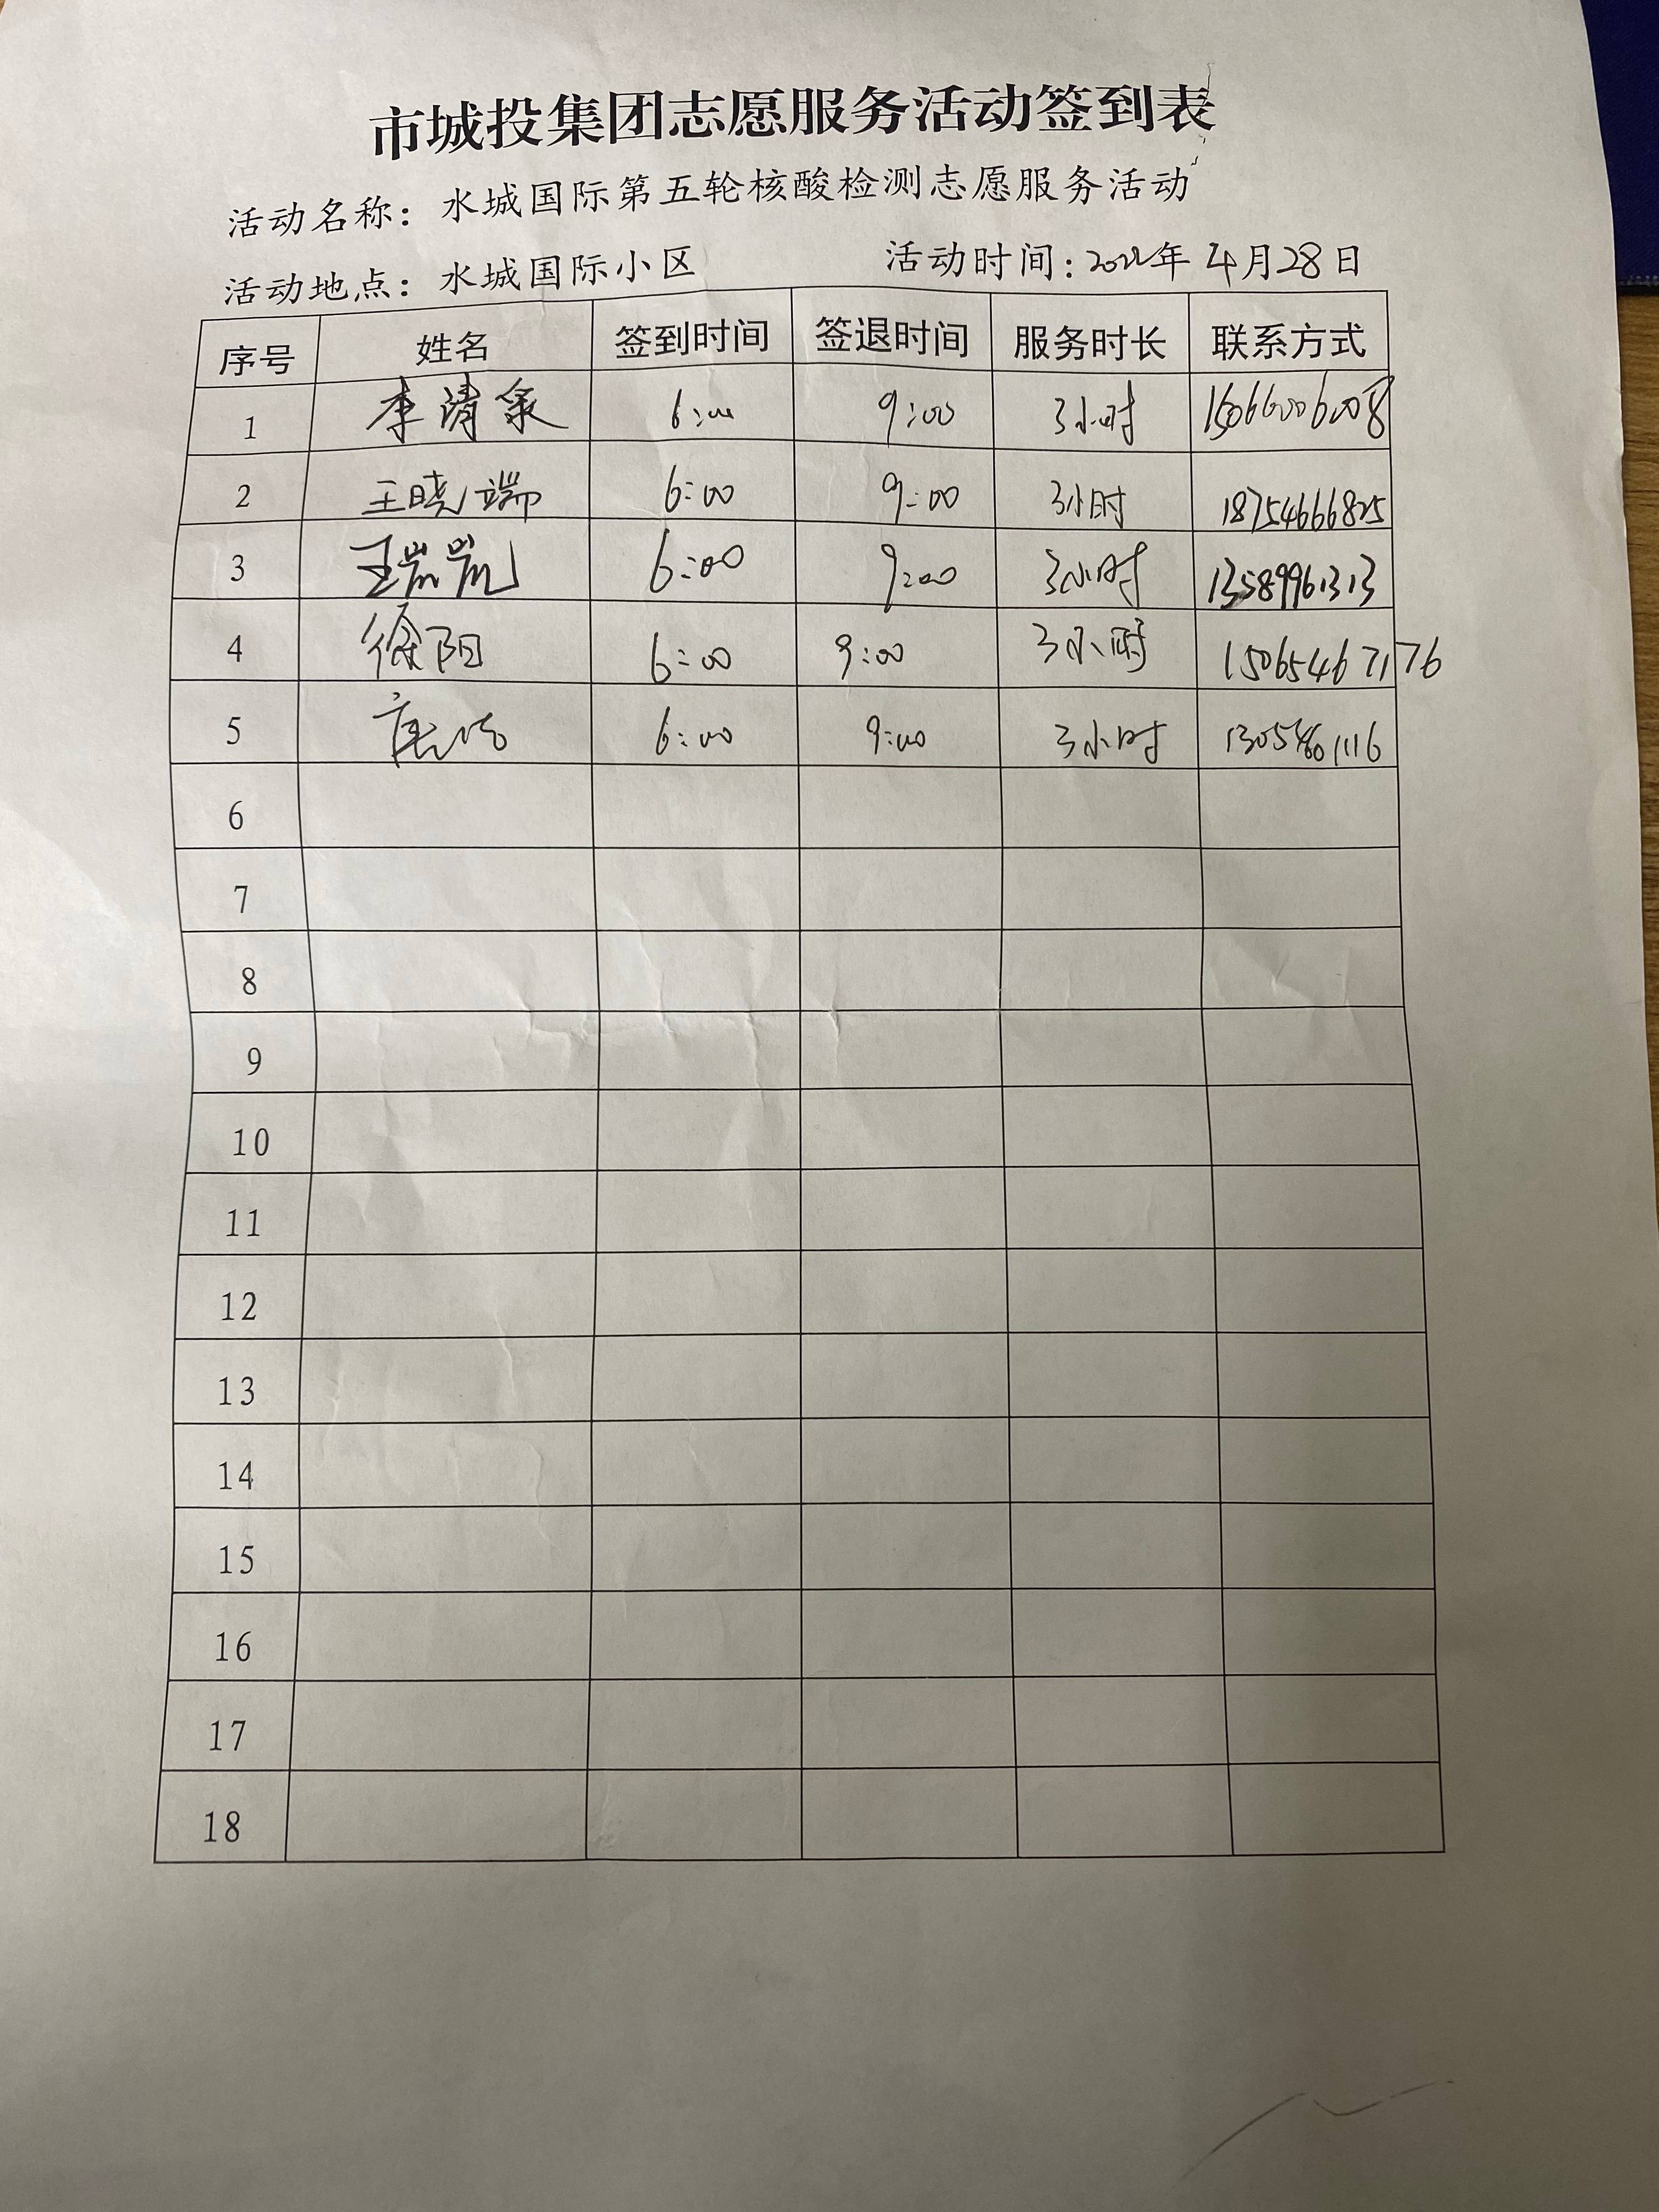 市城投集团志愿服务活动签到表
活动名称：水城国际第五轮核酸检测志愿服务活动
活动地点：水城国际小区 活动时间：2022年 4月28日
序号 姓名 签到时间 签退时间 服务时长 联系方式
1 李清泉 6:00 9:00 3小时
2 王晓端 6:00 9:00 3小时 18754666825
3 王岩岩 6:00 9:00 3小时 13589961313
4 徐阳 6:00 9:00 3小时 15065467176
5 6:00 9:00 3小时
6
7
8
9
10
11
12
13
14
15
16
17
18